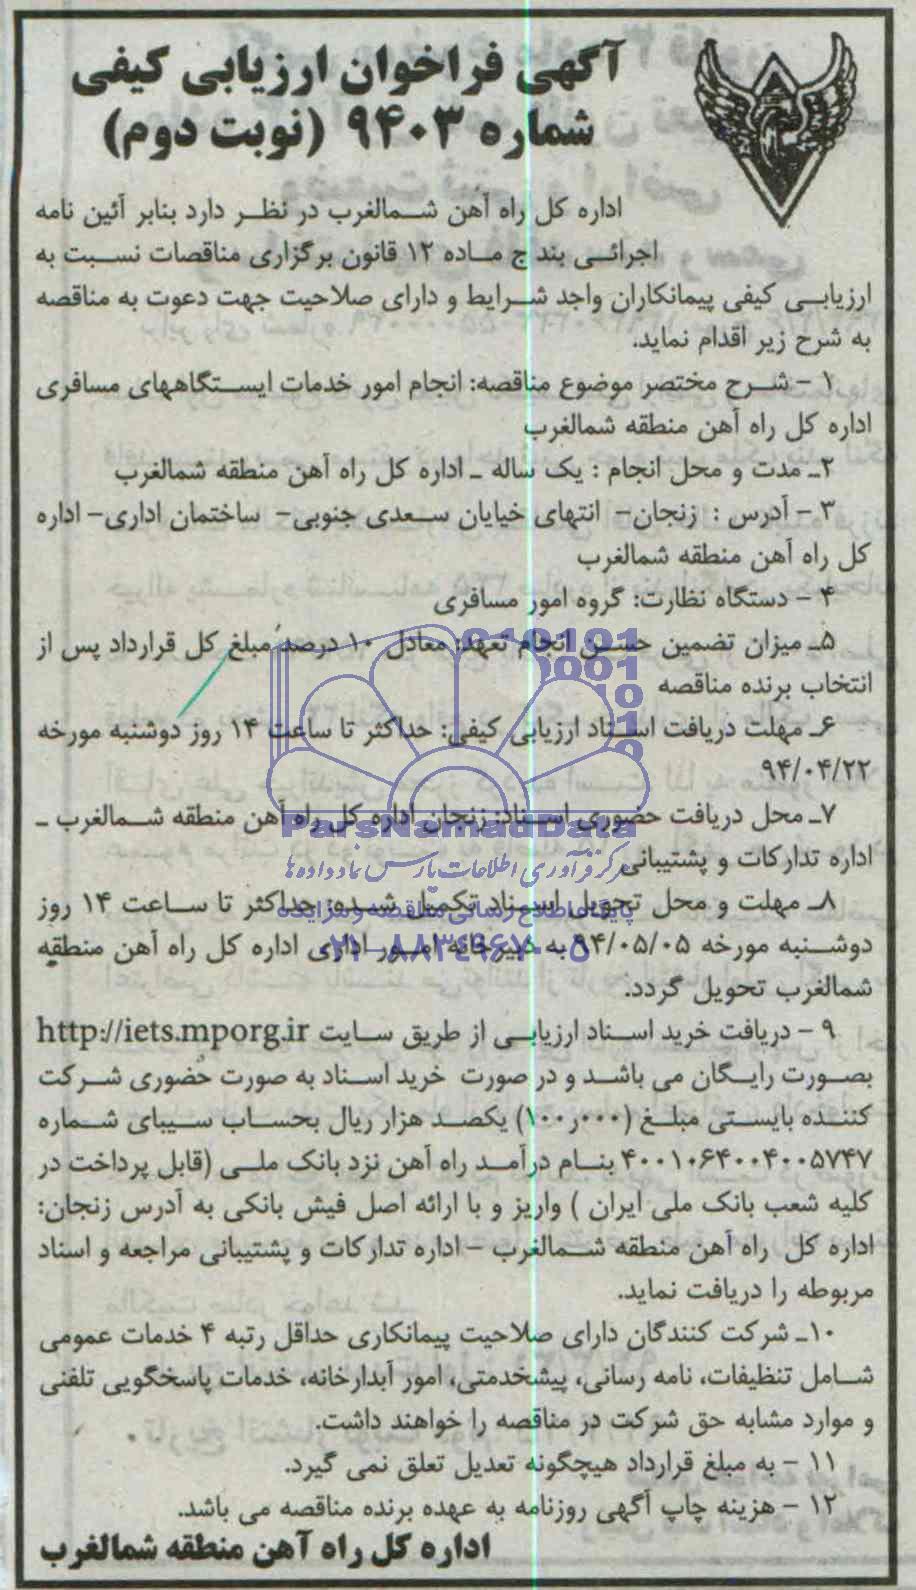 آگهی فراخوان ارزیابی کیفی
شماره ۹۴۰۳ (نوبت دوم)
اداره کل راه آهن شمالغرب در نظر دارد بنابر آئین نامه
اجرائی بند ج ماده ۱۲ قانون برگزاری مناقصات نسبت به
ارزیابی کیفی پیمانکاران واجد شرایط و دارای صلاحیت جهت دعوت به مناقصه
به شرح زیر اقدام نماید.
۱ - شرح مختصر موضوع مناقصه: انجام امور خدمات ایستگاههای مسافری
اداره کل راه آهن منطقه شمالغرب
۲ـ مدت و محل انجام : یک ساله ـ اداره کل راه آهن منطقه شمالغرب
۳ - آدرس : زنجان- انتهای خیابان سعدی جنوبی- ساختمان اداری- اداره
کل راه آهن منطقه شمالغرب
۴ - دستگاه نظارت: گروه امور مسافری
۵ـ میزان تضمین حسن انجام تعهد: معادل ۱۰ درصد مبلغ کل قرارداد پس از
انتخاب برنده مناقصه
۶ـ مهلت دریافت اسناد ارزیابی کیفی: حداکثر تا ساعت ۱۴ روز دوشنبه مورخه
۹۴/۰۴/۲۲
۷ـ محل دریافت حضوری اسناد: زنجان اداره کل راه آهن منطقه شمالغرب ـ
ParsNamadData
اداره تدارکات و پشتیبانی
مرکز فرآوری اطلاعات پارس نماد داده ها
۸ـ مهلت و محل تحویل اسناد تکمیل شده: حداکثر تا ساعت ۱۴ روز
پایگاه اطلاع رسانی مناقصه و مزایده
دوشنبه مورخه ۹۴/۰۵/۰۵ به دبیرخانه امور اداری اداره کل راه آهن منطقه
۰۲۱-۸۸۳۴۹۶۷۰-۵
شمالغرب تحویل گردد.
۹ - دریافت خرید اسناد ارزیابی از طریق سایت http://iets.mporg.ir
بصورت رایگان می باشد و در صورت خرید اسناد به صورت حضوری شرکت
کننده بایستی مبلغ (۱۰۰٫۰۰۰) یکصد هزار ریال بحساب سیبای شماره
۴۰۰۱۰۶۴۰۰۴۰۰۵۷۴۷ بنام درآمد راه آهن نزد بانک ملی (قابل پرداخت در
کلیه شعب بانک ملی ایران ) واریز و با ارائه اصل فیش بانکی به آدرس زنجان:
اداره کل راه آهن منطقه شمالغرب - اداره تدارکات و پشتیبانی مراجعه و اسناد
مربوطه را دریافت نماید.
۱۰ـ شرکت کنندگان دارای صلاحیت پیمانکاری حداقل رتبه ۴ خدمات عمومی
شامل تنظیفات، نامه رسانی، پیشخدمتی، امور آبدارخانه، خدمات پاسخگویی تلفنی
و موارد مشابه حق شرکت در مناقصه را خواهند داشت.
۱۱ - به مبلغ قرارداد هیچگونه تعدیل تعلق نمی گیرد.
۱۲ - هزینه چاپ آگهی روزنامه به عهده برنده مناقصه می باشد.
اداره کل راه آهن منطقه شمالغرب